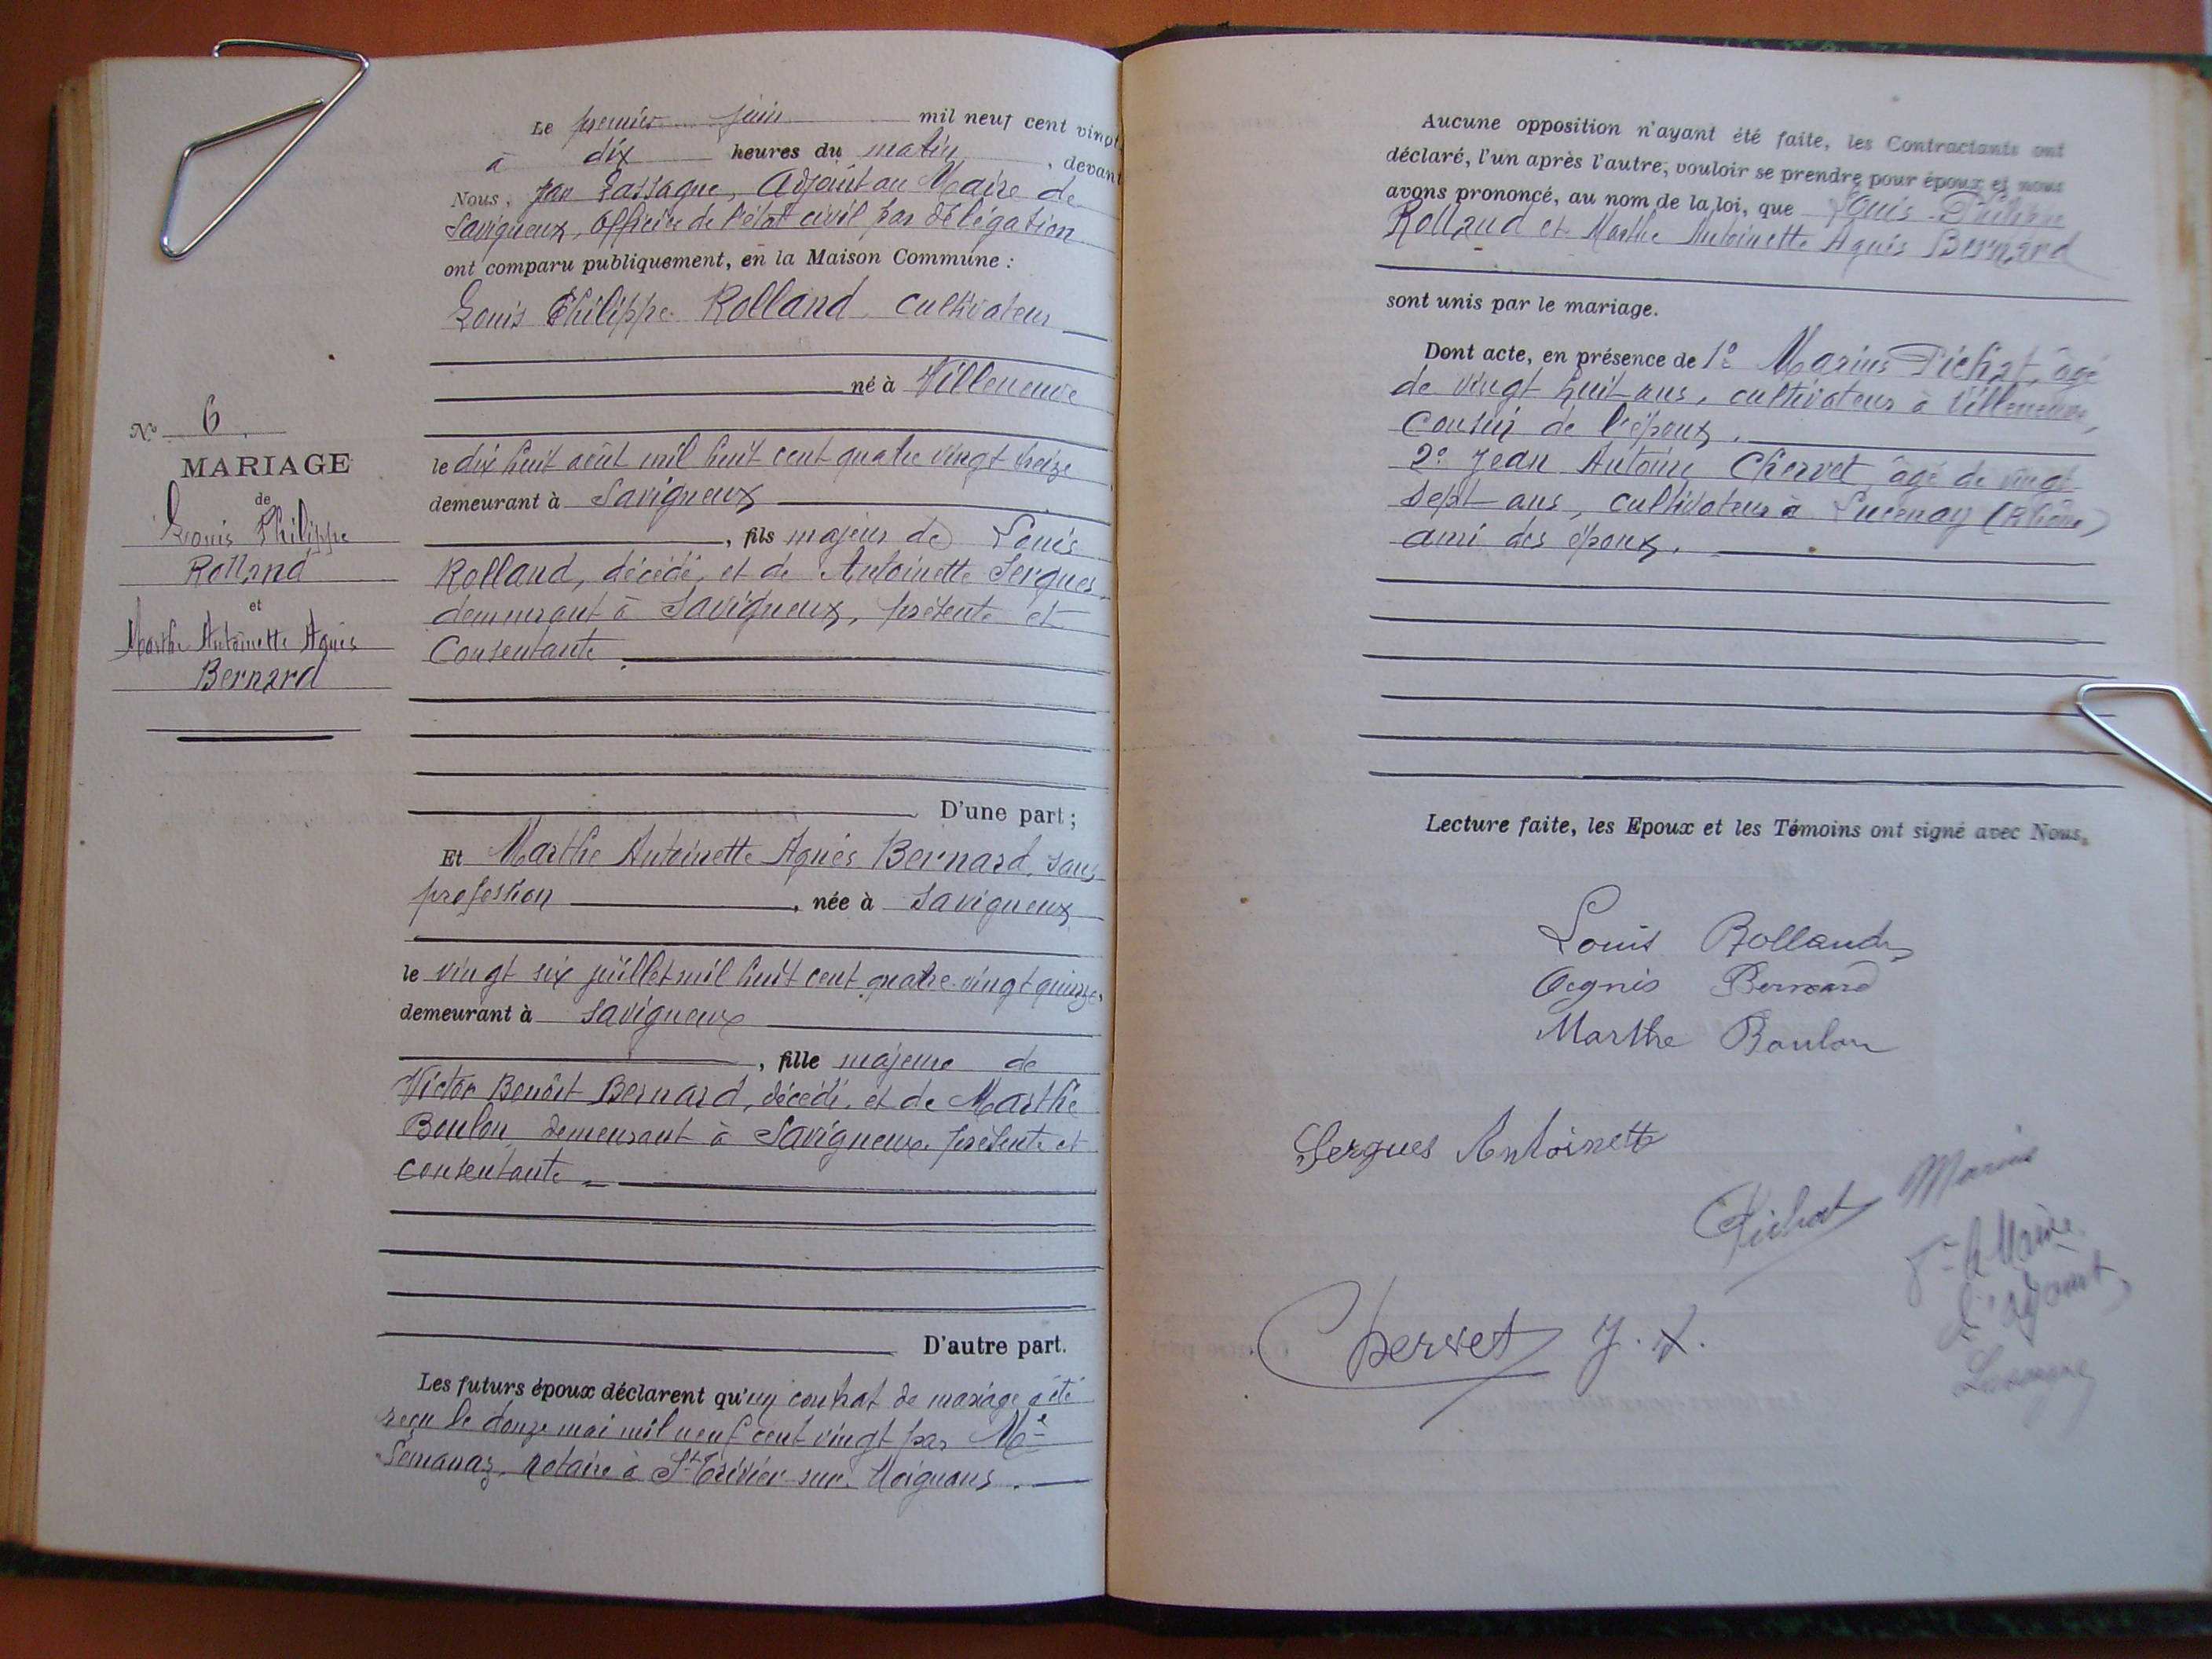 Le premier juin mil neuf cent vingt
à dix heures du matin, devant
Nous, Lassagne, Adjoint au Maire de
Savigneux, officier de l'état civil par délégation
ont comparu publiquement, en la Maison Commune :
Louis Philippe Rolland, cultivateur
né à Villeneuve
le dix huit août mil huit cent quatre vingt treize
demeurant à Savigneux
, fils majeur de Louis
Rolland, décédé, et de Antoinette Sergues
demeurant à Savigneux, présente et
consentante
D'une part ;
Et Marthe Antoinette Agnès Bernard, sans
profession, née à Savigneux
le vingt six juillet mil huit cent quatre-vingt quinze,
demeurant à Savigneux
, fille majeure de
Victor Benoît Bernard, décédé, et de Marthe
Boulon, demeurant à Savigneux, présente et
consentante
D'autre part.
Les futurs époux déclarent qu'un contrat de mariage a été
reçu le douze mai mil neuf cent vingt par Me
notaire à St Trivier-sur-Moignans.
N° 6.
MARIAGE
de
Louis Philippe
Rolland
et
Marthe Antoinette Agnès
Bernard
Aucune opposition n'ayant été faite, les Contractants ont
déclaré, l'un après l'autre, vouloir se prendre pour époux et nous
avons prononcé, au nom de la loi, que Louis Philippe
Rolland et Marthe Antoinette Agnès Bernard
sont unis par le mariage.
Dont acte, en présence de 1° Marius Pichat, âgé
de vingt huit ans, cultivateur à Villeneuve,
cousin de l'époux.
2° Jean Antoine Chervet, âgé de vingt
sept ans, cultivateur à Lucenay (Rhône)
ami des époux.
Lecture faite, les Epoux et les Témoins ont signé avec Nous.
Louis Rolland
Agnès Bernard
Marthe Boulon
Sergues Antoinette
Pichat Marius
Pr le Maire
L'adjoint,
Lassagne
Chervet J. A.